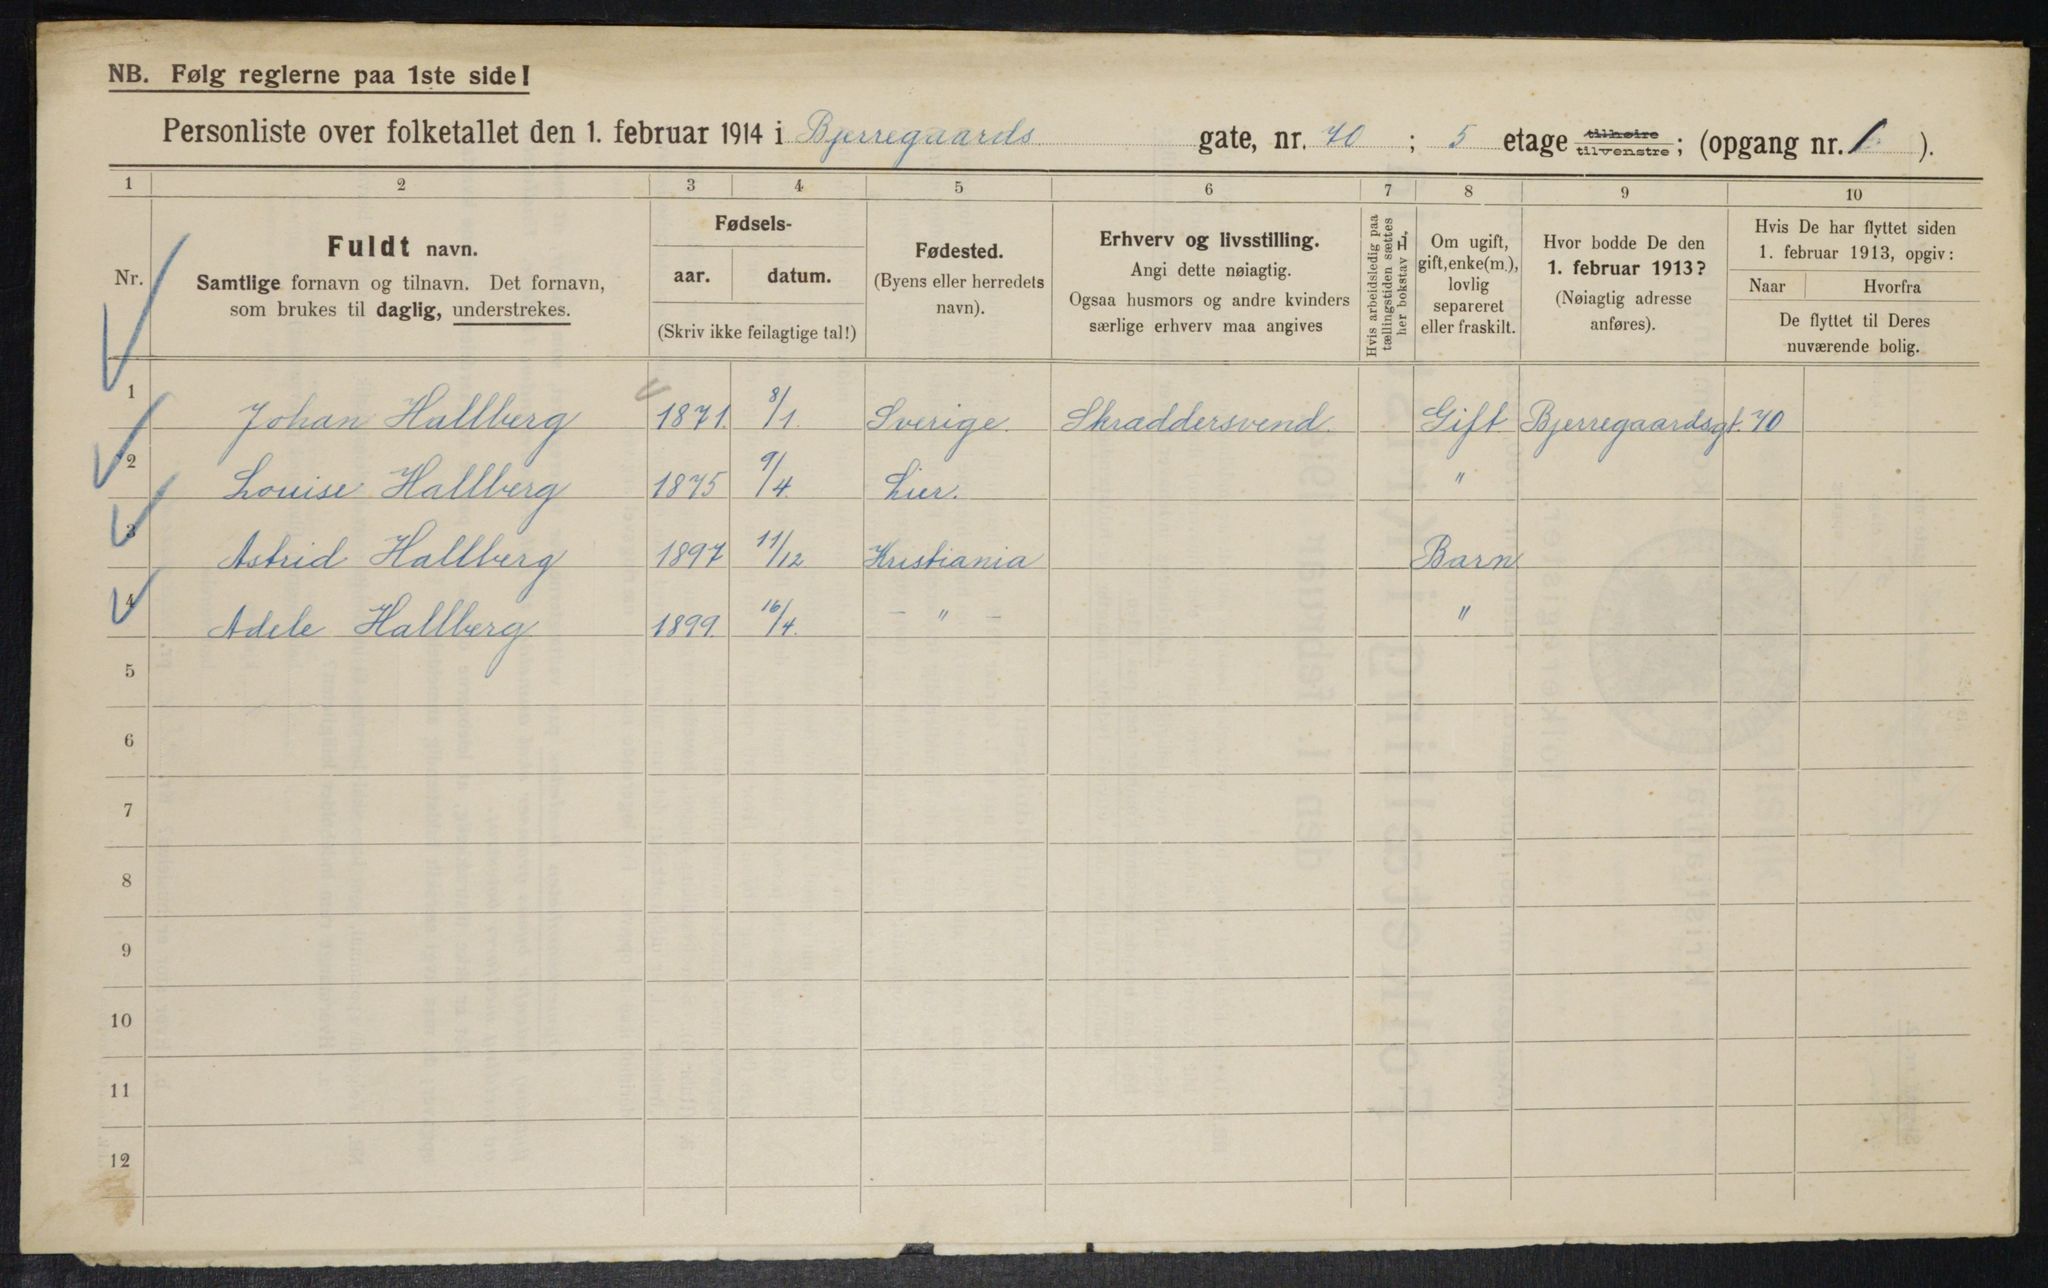 NB. Følg reglerne paa 1ste side!
Personliste over folketallet den 1. februar 1914 i Bjerregaards gate, nr. 70 ; 5 etage tilhøire tilvenstre ; (opgang nr. 1 ).
1 2 3 4 5 6 7 8 9 10
Nr.
Fuldt navn.
Samtlige fornavn og tilnavn. Det fornavn,
som brukes til daglig, understrekes.
Fødsels-
aar. datum.
(Skriv ikke feilagtige tal!)
Fødested.
(Byens eller herredets
navn).
Erhverv og livsstilling.
Angi dette nøiagtig.
Ogsaa husmors og andre kvinders
særlige erhverv maa angives
Hvis arbeidsledig paa
tællingstiden sættes
her bokstav L.
Om ugift,
gift, enke(m.),
lovlig
separeret
eller fraskilt.
Hvor bodde De den
1. februar 1913?
(Nøiagtig adresse
anføres).
Hvis De har flyttet siden
1. februar 1913, opgiv:
Naar Hvorfra
De flyttet til Deres
nuværende bolig.
1 Johan Hallberg 1871. 8/1. Sverige. Skræddersvend. Gift Bjerregaardsgt. 70
2 Louise Hallberg 1875 9/4. Lier. "
3 Astrid Hallberg 1897 11/12 Kristiania Barn
4 Adele Hallberg 1899. 16/4. — " — "
5
6
7
8
9
10
11
12